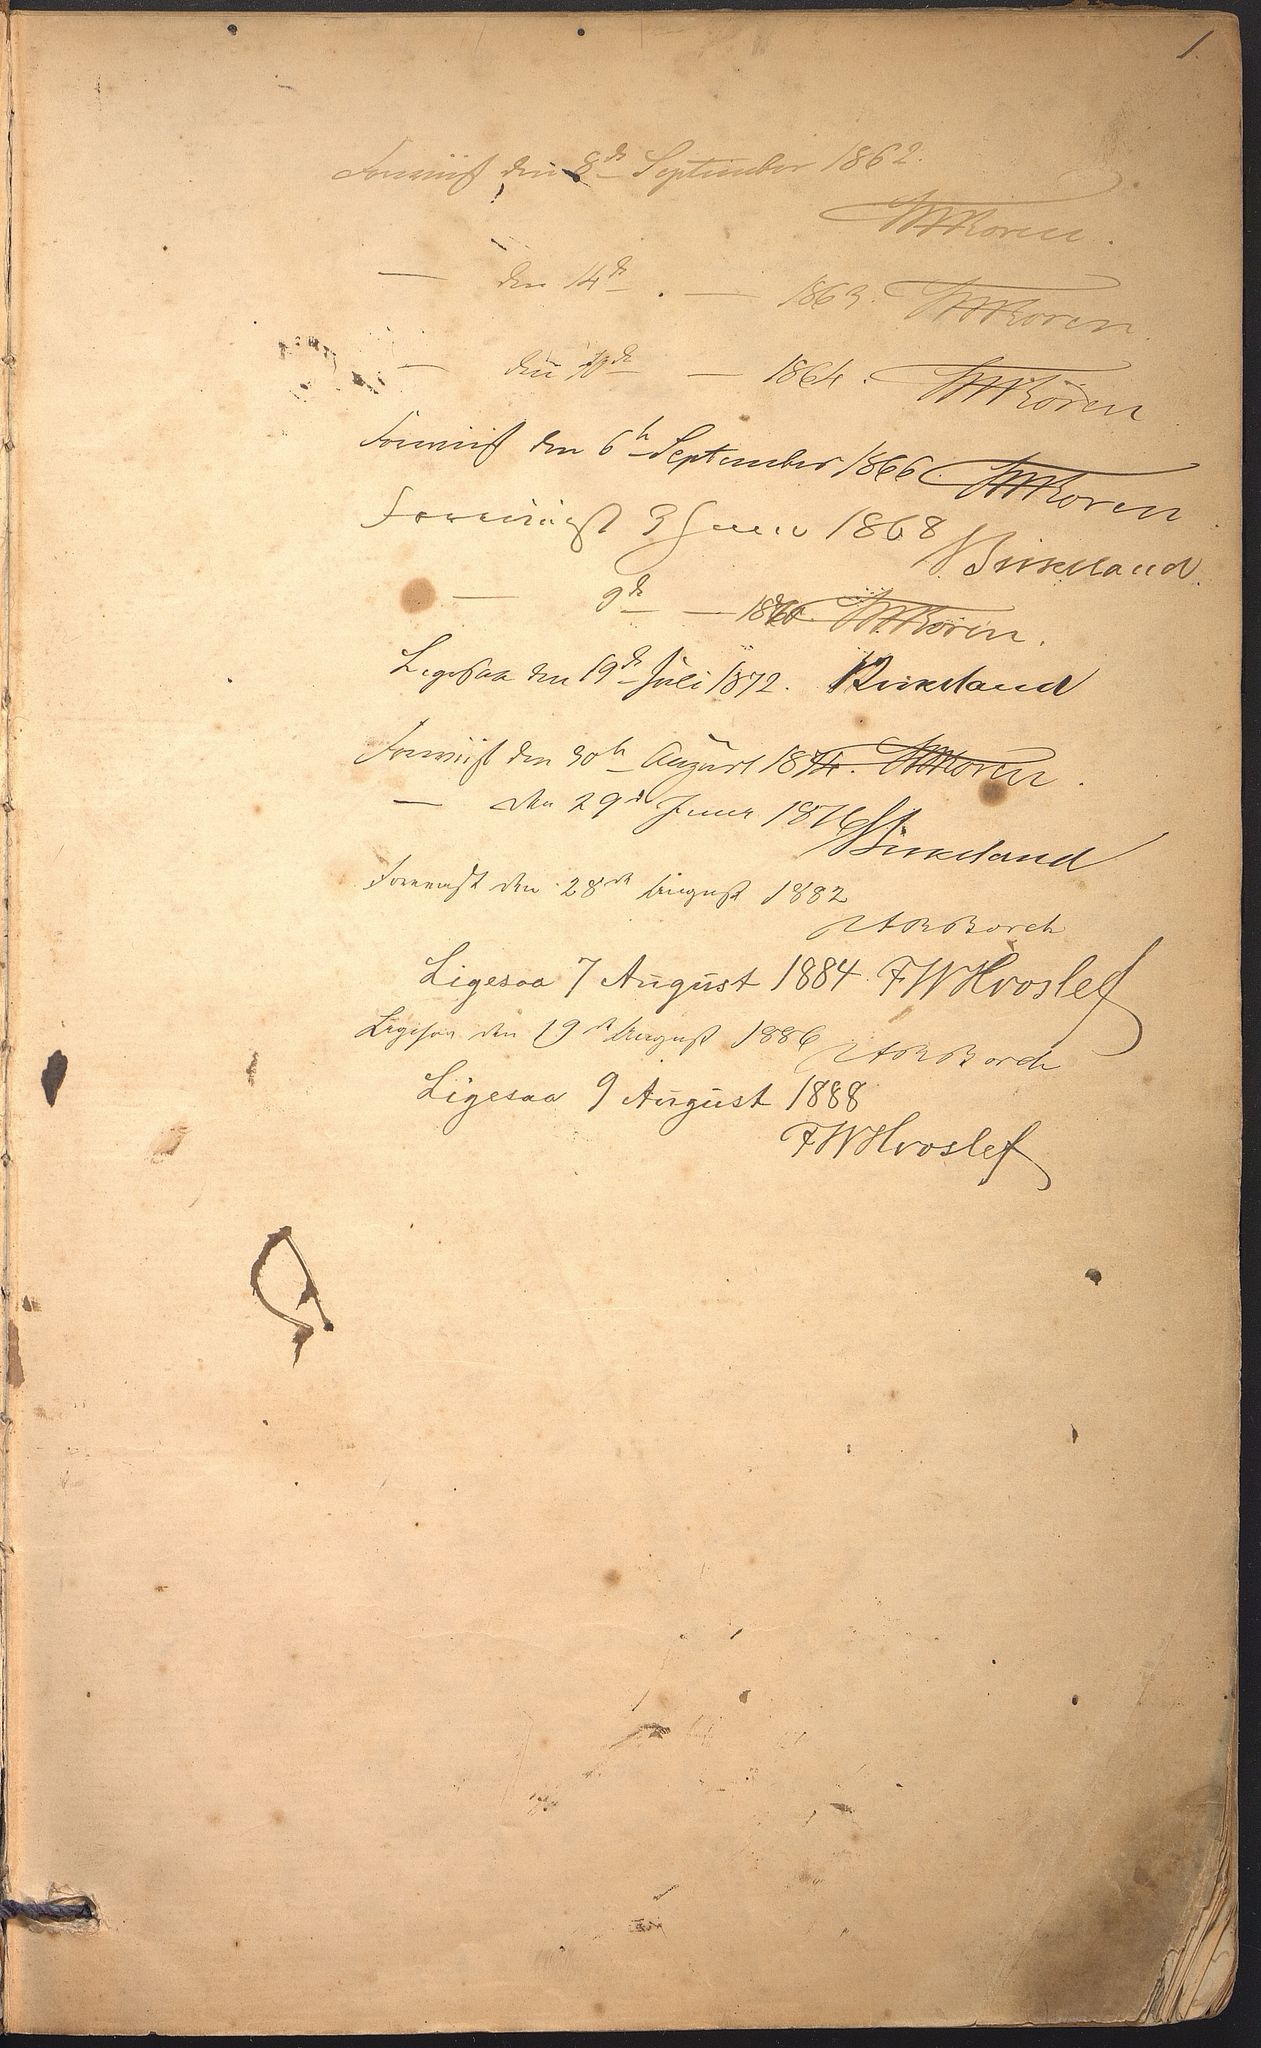 1.
Foreviist den 8de September 1862.
WWKoren.
— den 14de . — 1863. WWKoren
— den 10de — 1864. WWKoren
Foreviist den 6te September 1866. WWKoren
Foreviist 3 Juni 1868 Birkeland.
— 9de — 1870. WWKoren.
Ligesaa den 19de Juli 1872. Birkeland
Foreviist den 30te August 1874. WWKoren.
— den 29d Juni 1876 Birkeland
Forevist den 28de August 1882
Borch
Ligesaa 7 August 1884. FWHvoslef
Ligesaa den 19de August 1886 Borch
Ligesaa 9 August 1888
FWHvoslef